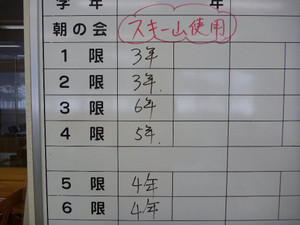 学 年 年
朝の会 スキー山使用
1 限 3年
2 限 3年.
3 限 6年
4 限 5年.
5 限 4年
6 限 4年